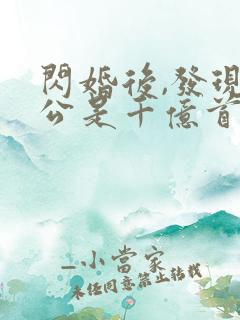 閃婚後,發現
公是千億首
_小當家
未經同意禁止轉載